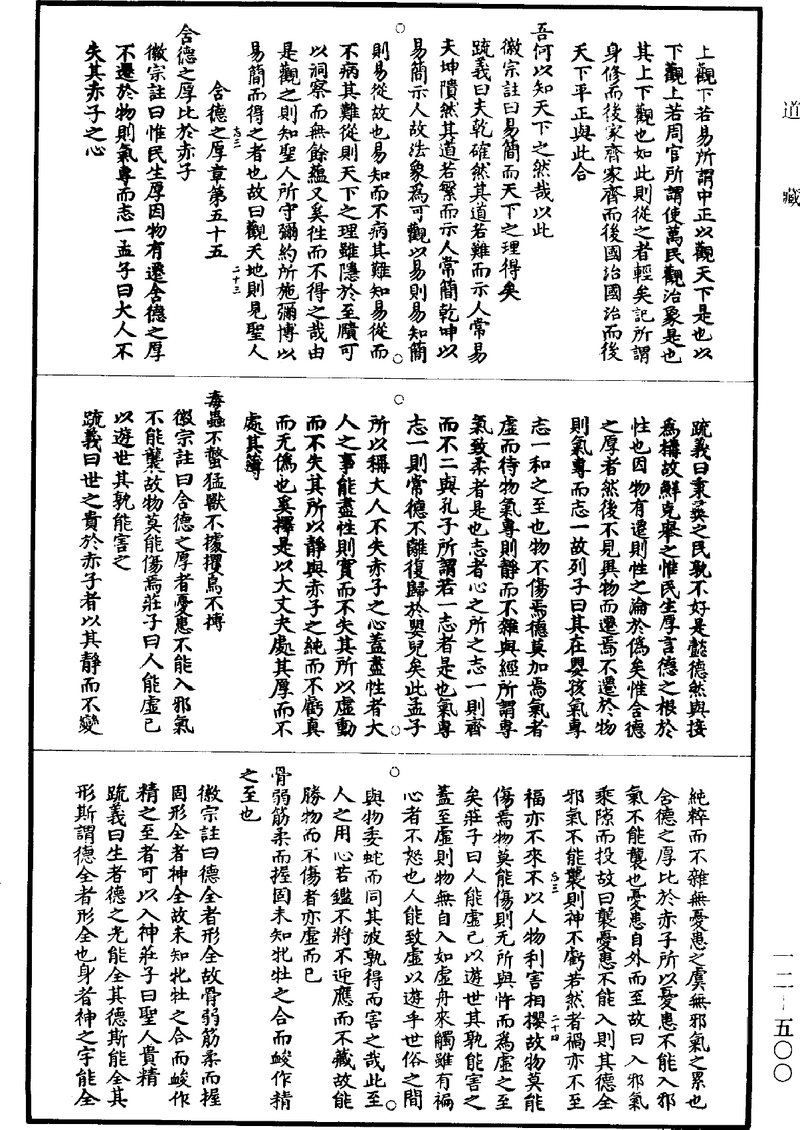 道藏
上觀下若易所謂中正以觀天下是也以
下觀上若周官所謂使萬民觀治象是也
其上下觀也如此則從之者輕矣記所謂
身修而後家齊家齊而後國治國治而後
天下平正與此合
吾何以知天下之然哉以此
徽宗註曰易簡而天下之理得矣
疏義曰夫乾確然其道若難而示人常易
夫坤隤然其道若繁而示人常簡乾坤以
易簡示人故法象為可觀以易則易知簡
則易從故也易知而不病其難知易從而
不病其難從則天下之理雖隱於至賾可
以洞察而無餘蘊又奚往而不得之哉由
是觀之則知聖人所守彌約所施彌博以
易簡而得之者也故曰觀天地則見聖人
含德之厚章第五十五
二十三
含德之厚比於赤子
徽宗註曰惟民生厚因物有遷含德之厚
不遷於物則氣專而志一孟子曰大人不
失其赤子之心
疏義曰秉彝之民孰不好是懿德然與接
為構故鮮克舉之惟民生厚言德之根於
性也因物有遷則性之淪於偽矣惟含德
之厚者然後不見異物而遷焉不遷於物
則氣專而志一故列子曰其在嬰孩氣專
志一和之至也物不傷焉德莫加焉氣者
虛而待物氣專則靜而不雜與經所謂專
氣致柔者是也志者心之所之志一則齊
而不二與孔子所謂若一志者是也氣專
志一則常德不離復歸於嬰兒矣此孟子
所以稱大人不失赤子之心蓋盡性者大
人之事能盡性則實而不失其所以虛動
而不失其所以靜與赤子之純而不虧真
而无偽也奚擇是以大丈夫處其厚而不
處其薄
毒蟲不螫猛獸不據攫鳥不搏
徽宗註曰含德之厚者憂患不能入邪氣
不能襲故物莫能傷焉莊子曰人能虛己
以遊世其孰能害之
疏義曰世之貴於赤子者以其靜而不變
純粹而不雜無憂患之虞無邪氣之累也
含德之厚比於赤子所以憂患不能入邪
氣不能襲也憂患自外而至故曰入邪氣
乘隙而投故曰襲憂患不能入則其德全
邪氣不能襲則神不虧若然者禍亦不至
二十四
福亦不來不以人物利害相攖故物莫能
傷焉物莫能傷則无所與忤而為虛之至
矣莊子曰人能虛己以遊世其孰能害之
蓋至虛則物無自入如虛舟來觸雖有褊
心者不怒也人能致虛以遊乎世俗之間
與物委蛇而同其波孰得而害之哉此至
人之用心若鑑不將不迎應而不藏故能
勝物而不傷者亦虛而已
骨弱筋柔而握固未知牝牡之合而峻作精
之至也
徽宗註曰德全者形全故骨弱筋柔而握
固形全者神全故未知牝牡之合而峻作
精之至者可以入神莊子曰聖人貴精
疏義曰生者德之光能全其德斯能全其
形斯謂德全者形全也身者神之宇能全
一二—五〇〇